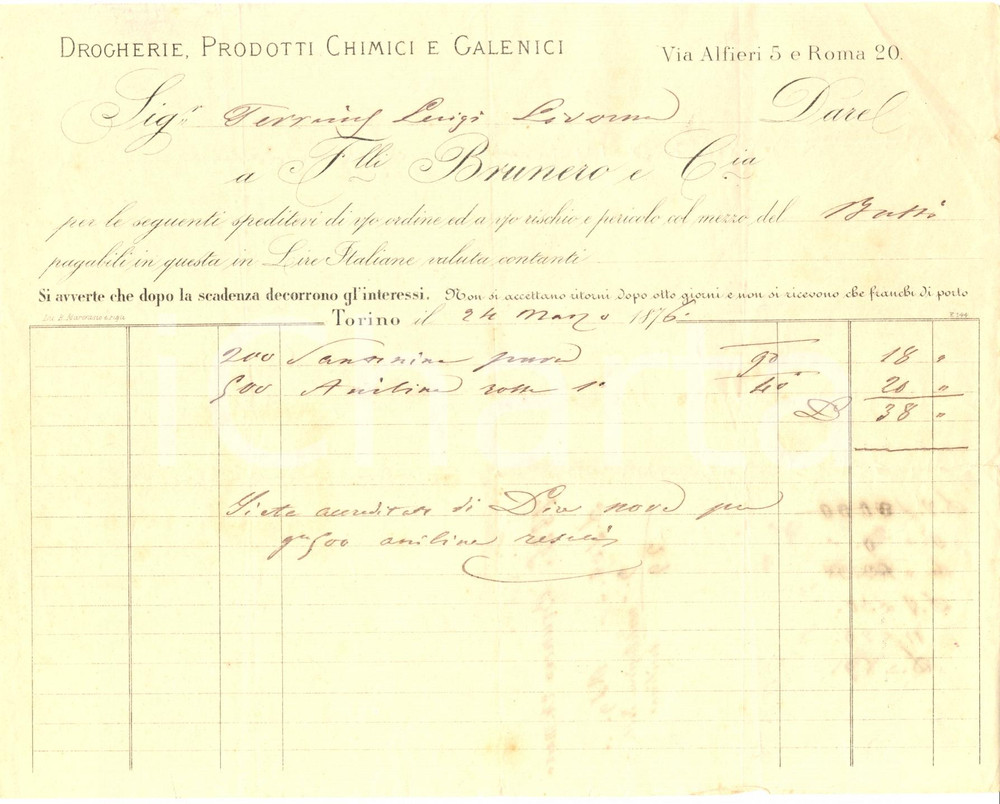 DROGHERIE, PRODOTTI CHIMICI E GALENICI
Via Alfieri 5 e Roma 20.
Sig.r Luigi Livorno Dare
a F.lli Brunero e C.ia
per le seguenti speditevi di v/o ordine ed a v/o rischio e pericolo col mezzo del
pagabili in questa in Lire Italiane valuta contanti
Si avverte che dopo la scadenza decorrono gl'interessi. Non si accettano ritorni dopo otto giorni e non si ricevono che franchi di porto
Torino il 24 Marzo 1876
200 Santonina pura 90 18 "
500 Anilina rossa 1a 40 20 "
38 "
Siete accreditato di Lire nove per
gr 500 anilina
iCharta